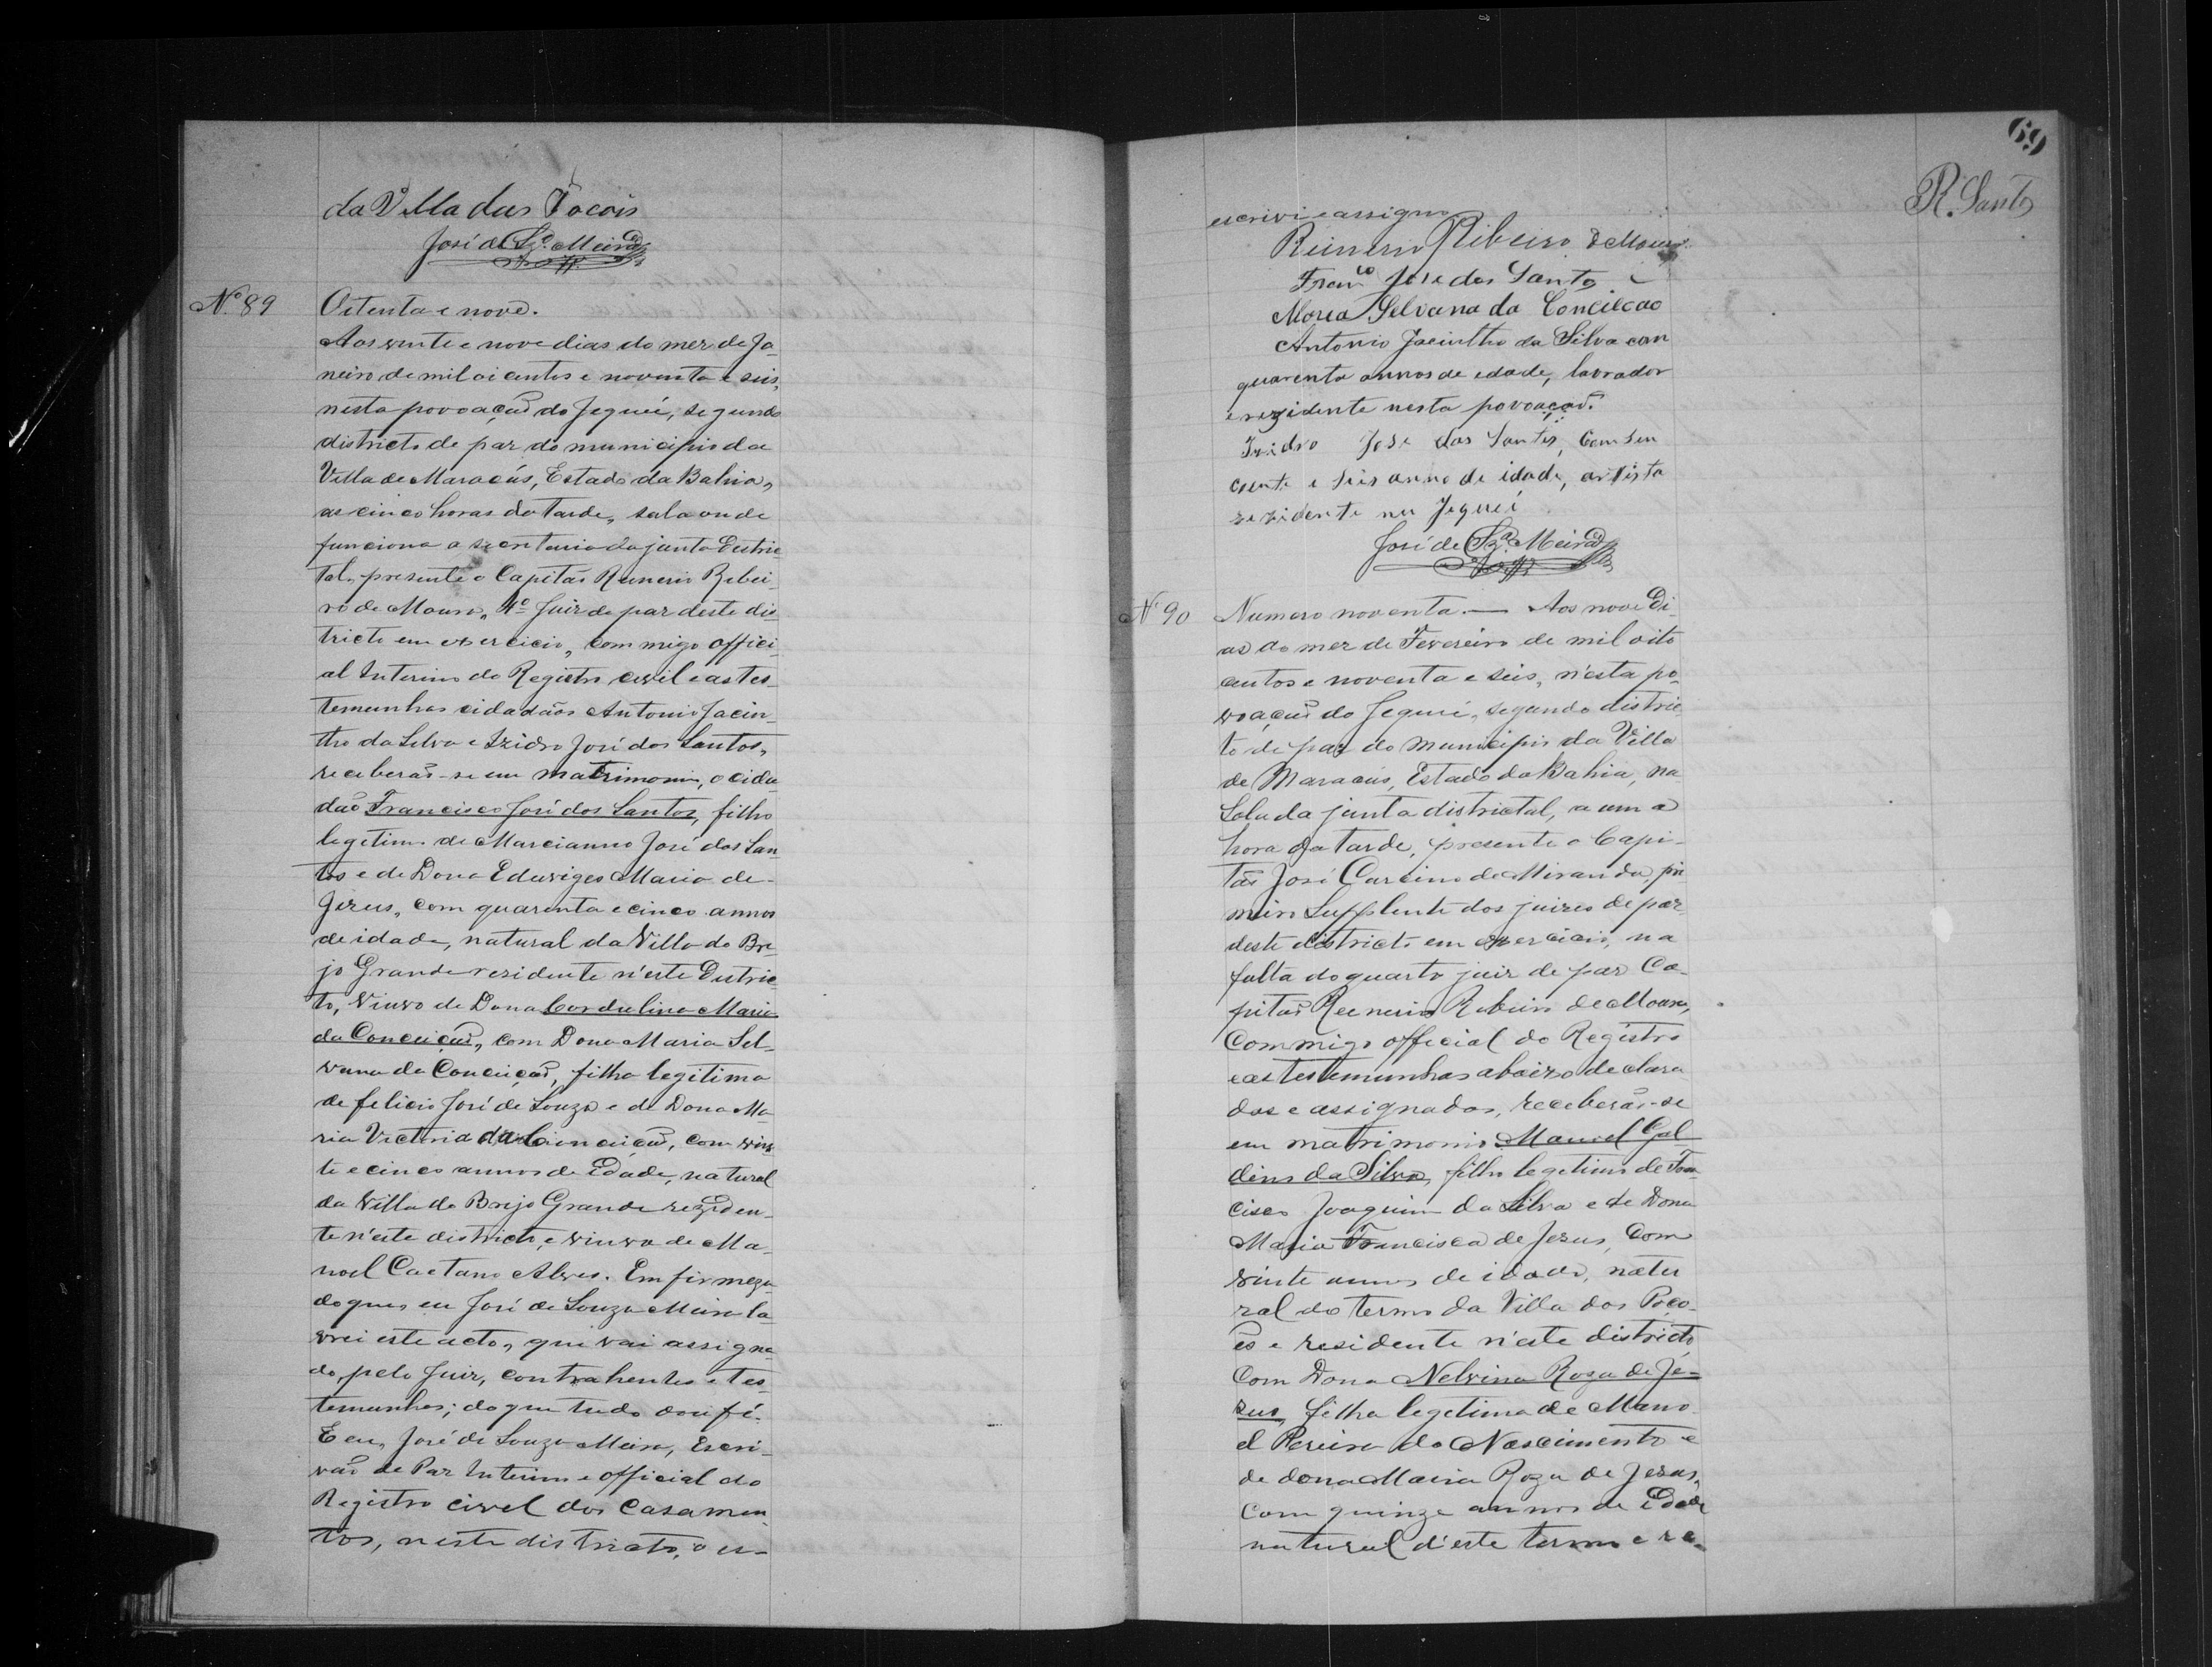 da Villa dos Pocois
José de Sza. Meira
Nº 89
Oitenta e nove.
Aos vinte e nove dias do mez de Ja-
neiro de mil oi centos e noventa e seis,
nesta povoaçaõ do Jequié, segundo
districto de paz do municipio da
Villa de Maracás, Estado da Bahia,
as cinco horas da tarde, sala onde
funciona a secretaria da junta Distric-
tal, presente o Capitaõ Reinerio Ribei-
ro de Moura, 4º Juiz de paz deste dis-
tricto em exercicio, commigo offici-
al Interino do Registro civil e as tes-
temunhas cidadãos Antonio Jacin-
tho da Silva e Izidro José dos Santos,
receberaõ-se em matrimonio, o cida-
daõ Francisco José dos Santos, filho
legitimo de Marcianno José dos San-
tos e de Dona Eduviges Maria de
Jezus, com quarenta e cinco annos
de idade, natural da Villa do Bre-
jo Grande rezidente n'este Distric-
to, Viuvo de Dona Cordulina Maria
da Conceiçaõ, com Dona Maria Sel-
vana da Conceiçaõ, filha legitima
de felicio José de Souza e de Dona Ma-
ria Victoria da Conceiçaõ, com vin-
te e cinco annos de Idade, natural
da Villa do Brejo Grande reziden-
te n'este districto, e viuva de Ma-
noel Caetano Alves. Em firmeza
do que, eu José de Souza Meira la-
vrei este acto, que vai assigna-
do, pelo Juiz, contrahentes e tes-
temunhas; do que tudo dou fé.
E eu, José de Souza Meira, Escri-
vaõ de Paz Interino e official do
Registro civel dos casamen-
tos, neste districto, o es-
69
R. Santos
escrivi e assigno
Reinerio Ribeiro de Moura
Franco Jose dos Santos
Morea Selvana da Conceicao
Antonio Jacintho da Silva com
quarenta annos de edade, lavrador
e rezidente nesta povoaçaõ.
Izidro Jose dos Santos, Com sen
coenta e seis anno de idade, artista
rezidente no Jequié
José de Sza. Meira
Nº 90
Numero noventa. — Aos nove Di-
as do mez de Fevereiro de mil oito
centos e noventa e seis, n'esta po-
voaçaõ do Jequié, segundo distric-
to de paz do Municipio da Villa
de Maracás, Estado da Bahia, na
Sala da junta districtal, a uma
hora da tarde, presente o Capi-
taõ José Carcino de Miranda, pri-
meiro Supplente dos juizes de paz
deste districto em exercicio, na
falta do quarto juiz de paz Ca-
pitaõ Reenerio Ribeiro de Moura,
Commigo official do Registro
e as testemunhas abaixo declara
das e assignadas, receberaõ-se
em matrimonio Manoel Gal
dino da Silva, filho legitimo de Fran-
cisco Joaquim da Silva e de Dona
Maria Francisca de Jezus, Com
vinte annos de idade, natu
ral do termo da Villa dos Poço-
ẽs e residente n'este districto
Com Dona Nelvina Roza de Je-
zus, filha legitima de Mano-
el Pereira do Nascimento e
de dona Maria Roza de Jesus,
com quinze annos de Idade
natural d'este termo e re-